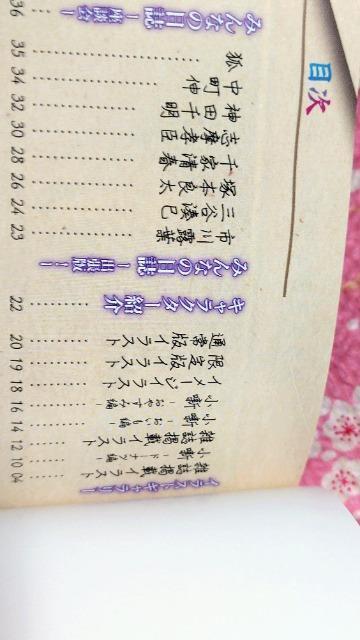 目次
イラストギャラリー
雑誌掲載イラスト 04
小噺 -ドーナツ編- 10
雑誌掲載イラスト 12
小噺 -おいも編- 14
小噺 -おやすみ編- 16
イメージイラスト 18
限定版イラスト 19
通常版イラスト 20
キャラクター紹介 22
みんなの日誌 ー出張版ー
市川露葉 23
三谷湊己 24
塚本良太 26
千家清春 28
志摩孝臣 30
神田千明 32
中町伸 34
狐 35
みんなの日誌 ー座談会ー 36